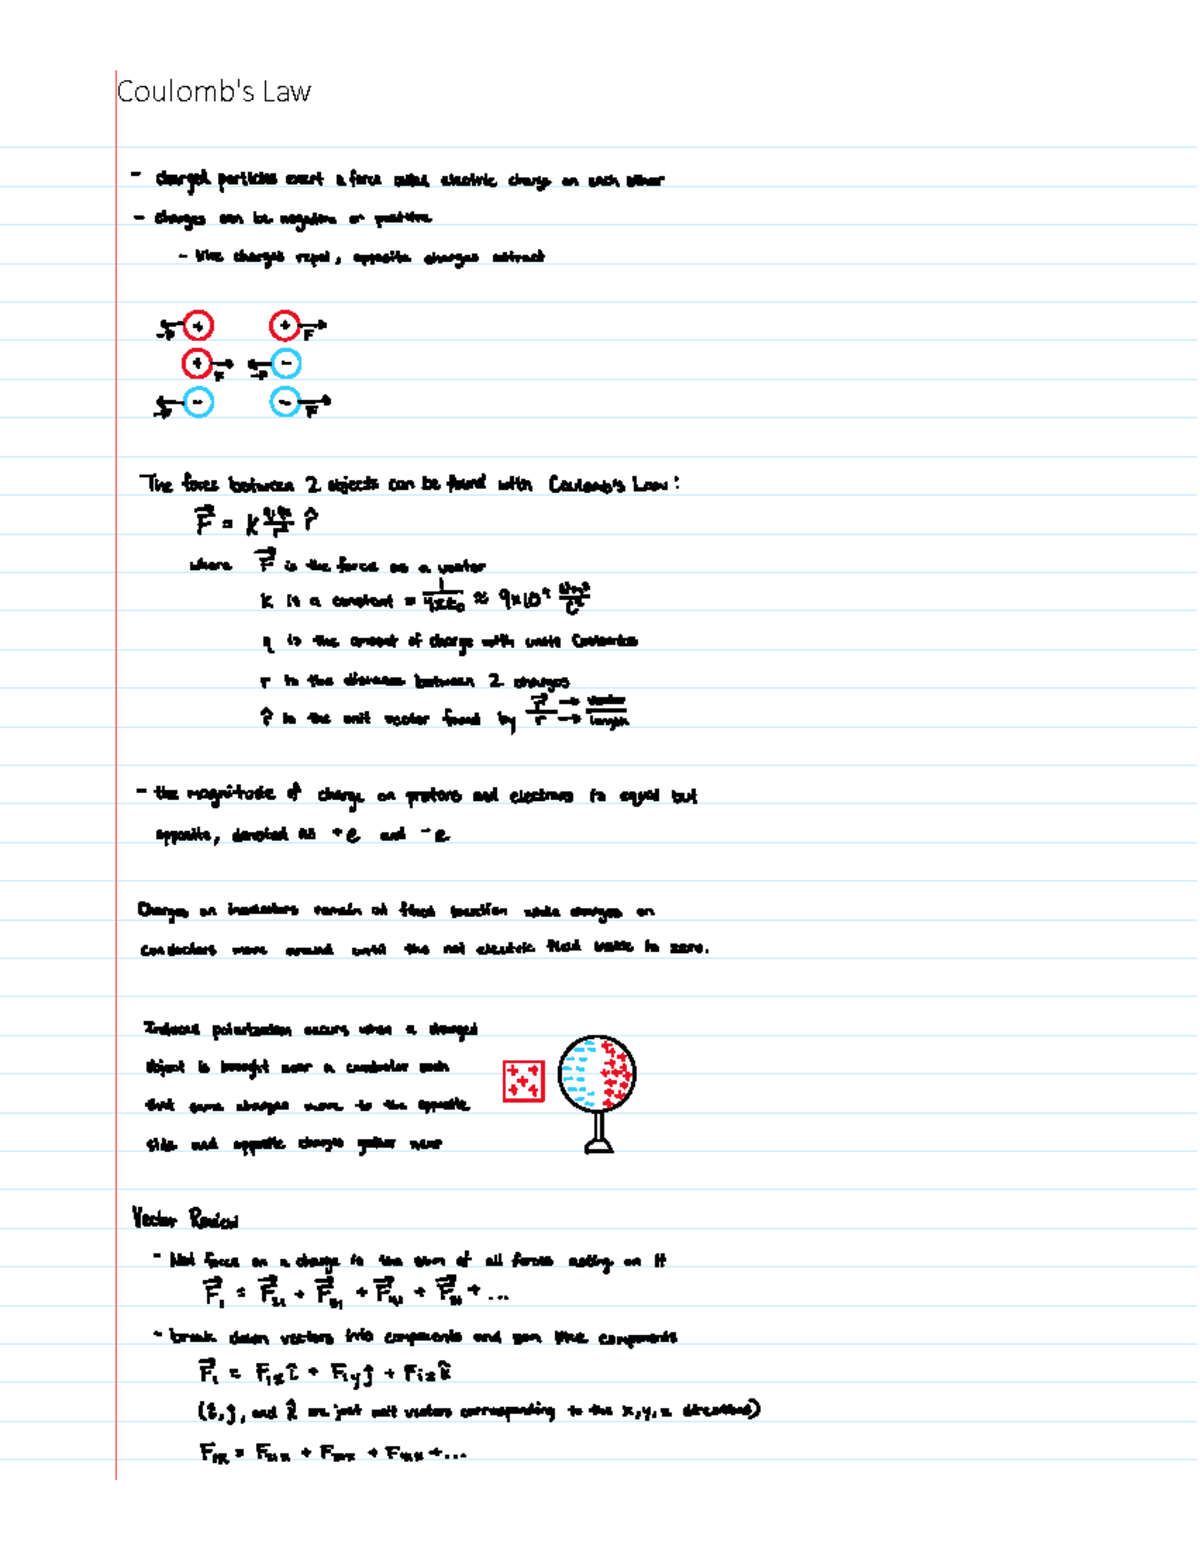 Coulomb's Law
- charged particles exert a force called electric charge on each other
- charges can be negative or positive
- like charges repel, opposite charges attract
-F + + F
+ F -F -
-F - - F
The force between 2 objects can be found with Coulomb's Law:
F⃗ = k q₁q₂/r² r̂
where F⃗ is the force as a vector
k is a constant = 1/4πε₀ ≈ 9×10⁹ Nm²/C²
q is the amount of charge with units Coulombs
r is the distance between 2 charges
r̂ is the unit vector found by r⃗/r → vector → length
- the magnitude of charge on protons and electrons is equal but
opposite, denoted as +e and -e
Charges on insulators remain at fixed location while charges on
conductors move around until the net electric field inside is zero.
Induced polarization occurs when a charged
object is brought near a conductor such
that same charges move to the opposite
side and opposite charges gather near
Vector Review
- Net force on a charge is the sum of all forces acting on it
F⃗₁ = F⃗₂₁ + F⃗₃₁ + F⃗₄₁ + F⃗₅₁ + ...
- break down vectors into components and sum like components
F⃗₁ = F₁ₓî + F₁yĵ + F₁zk̂
(î, ĵ, and k̂ are just unit vectors corresponding to the x, y, z directions)
F₁ₓ = F₂₁ₓ + F₃₁ₓ + F₄₁ₓ + ...